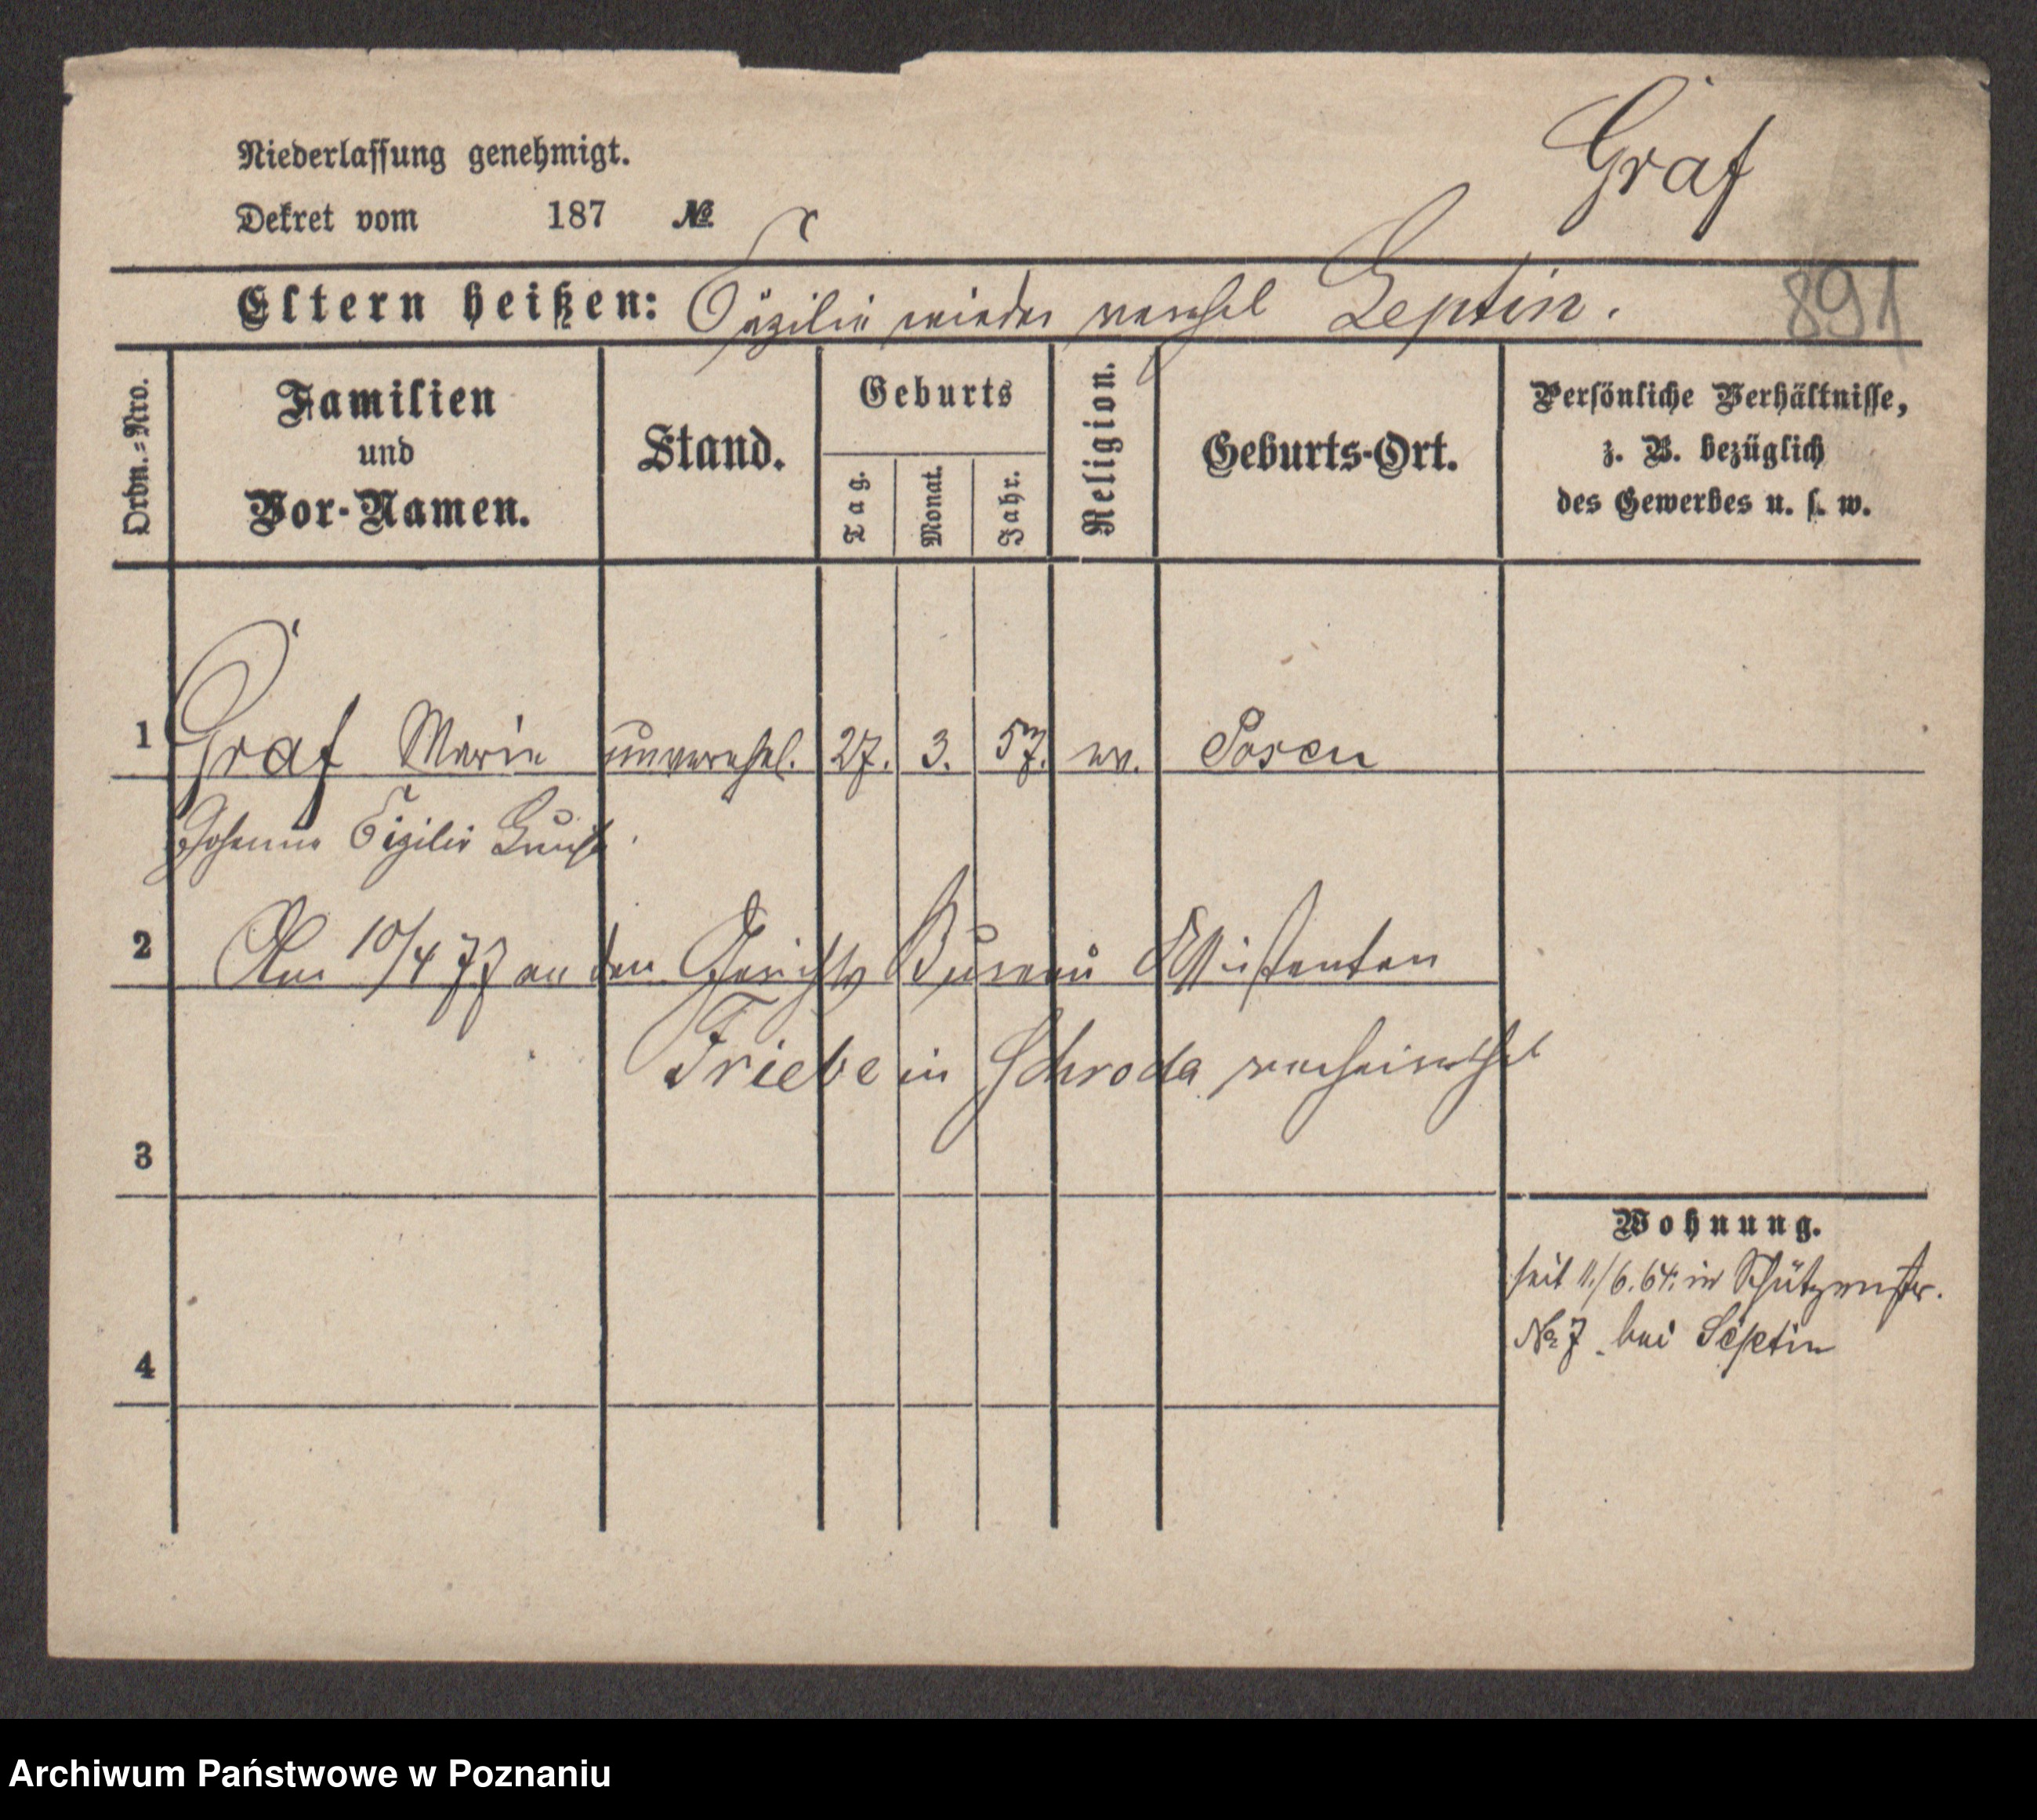 Graf
Niederlassung genehmigt.
Dekret vom 187 №
Eltern heißen: Cäzilie wieder verehel Zeptin.
891
Ordn.=Nro.
Familien
und
Vor-Namen.
Stand.
Geburts
Tag.
Monat.
Jahr.
Religion.
Geburts-Ort.
Persönliche Verhältnisse,
z. B. bezüglich
des Gewerbes u. s. w.
1 Graf Marie unverehel. 27. 3. 57. ev. Posen
Johanna Luise
2 Am 10/4 77 an den Gerichts Bureau Assistenten
Friebe in Schroda verheirathet
3
Wohnung.
seit 11./6. 64. in Schützenstr.
№ 7. bei
4
Archiwum Państwowe w Poznaniu